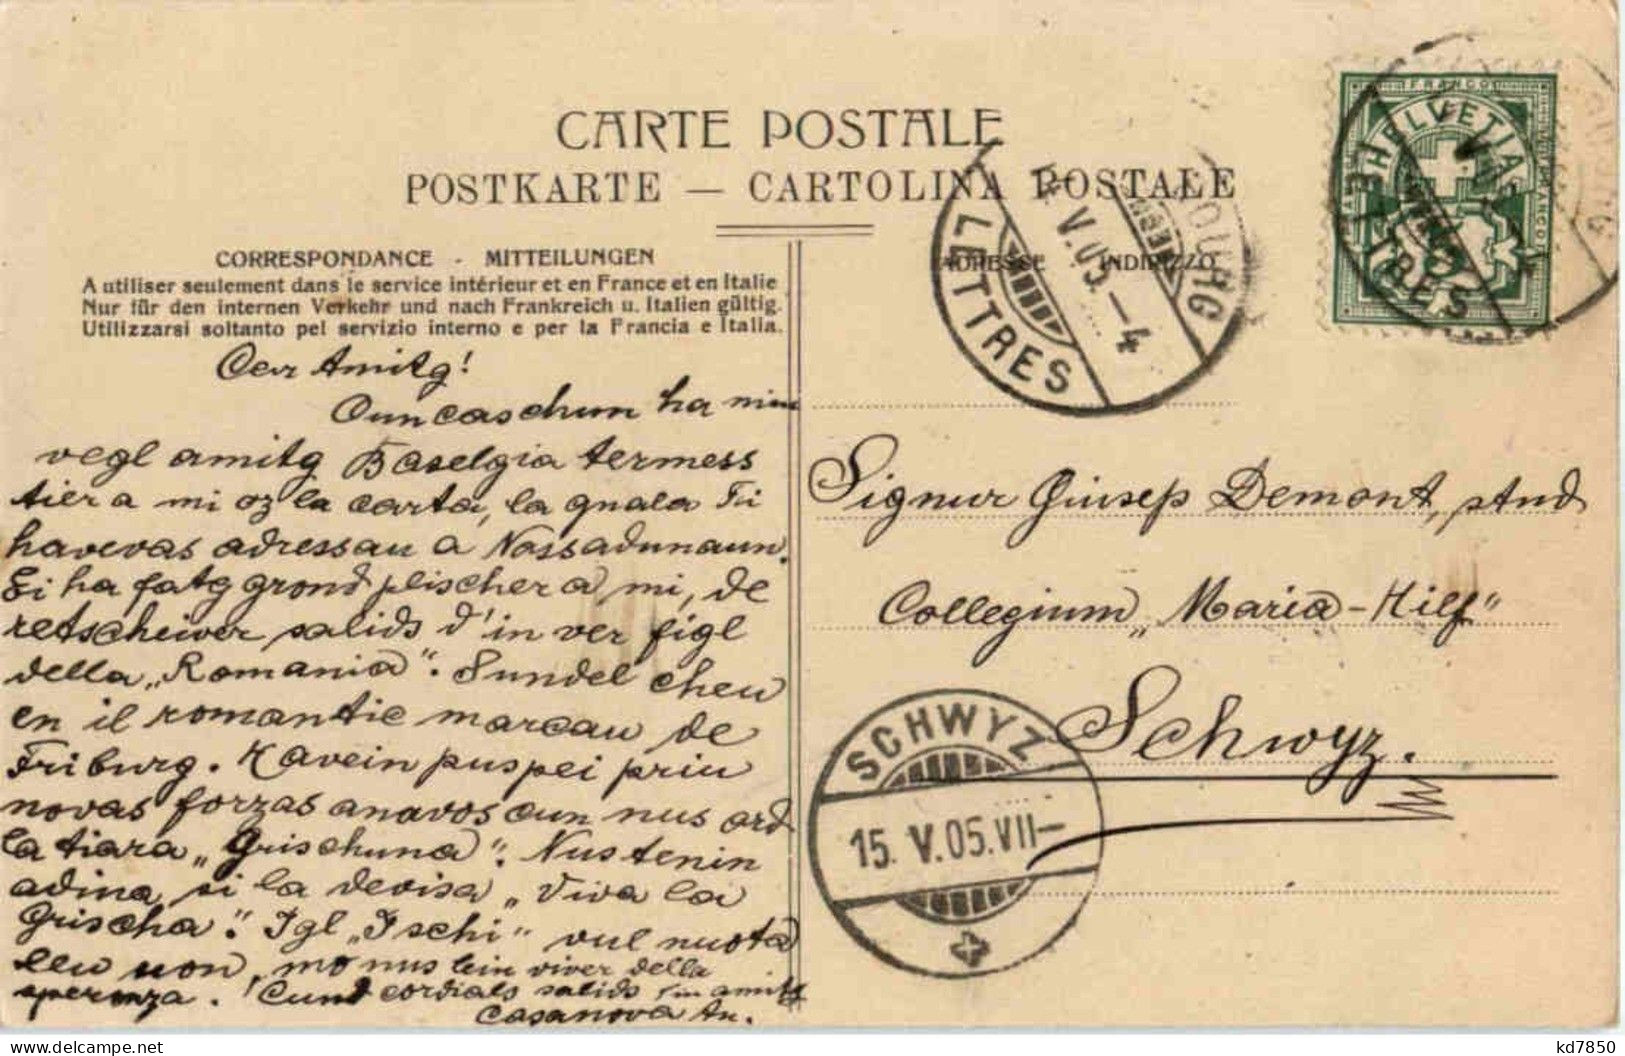 CARTE POSTALE
POSTKARTE — CARTOLINA POSTALE
CORRESPONDANCE - MITTEILUNGEN
A utiliser seulement dans le service intérieur et en France et en Italie
Nur für den internen Verkehr und nach Frankreich u. Italien gültig.
Utilizzarsi soltanto pel servizio interno e per la Francia e Italia.
ADRESSE INDIRIZZO
FRANCO
HELVETIA
5
LETTRES
V.05.–4
LETTRES
OURG
Car Amitg!
Cun caschun ha miu
vegl amitg Baselgia termess
tier a mi oz la carta, la quala Ti
havevas adressau a Nossadunnaun.
Ei ha fatg grond plischer a mi, de
retscheiver salids d'in ver figl
della „Romania". Sundel cheu
en il romantic marcau de
Friburg. Havein puspei priu
novas forzas anavos cun nus ord
la tiara „Grischuna". Nus tenin
adina si la devisa „Viva la
Grischa". Igl „Ischi" vul nuota
leu uon, mo nus lein viver della
speronza. Cund cordials salids tiu amitg
Casanova An.
Signur Giusep Demont, stud
Collegium „Maria-Hilf"
Schwyz.
SCHWYZ
15. V.05.VII–
kd7850